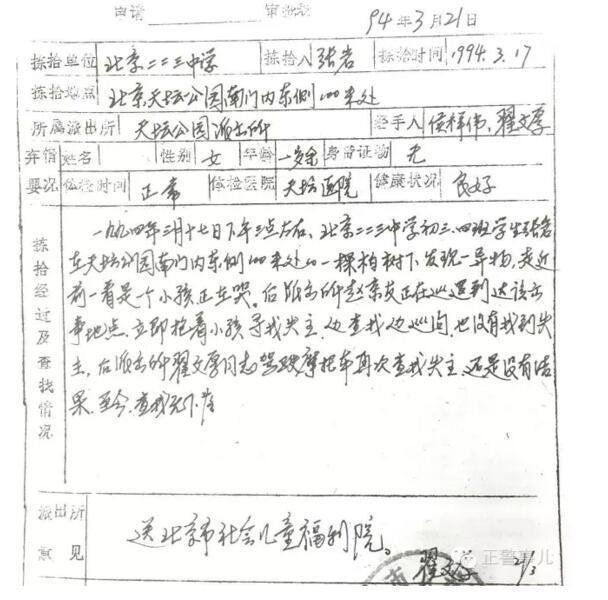 申请 审批表
94年3月21日
拣拾单位 北京二二三中学 拣拾人 张岩 拣拾时间 1994.3.17
拣拾地点 北京天坛公园南门内东侧100米处
所属派出所 天坛公园派出所 经手人 侯祥伟、翟文厚
弃婴情况 姓名 性别 女 年龄 一岁余 身份证物 无
体检时间 正常 体检医院 天坛医院 健康状况 良好
拣拾经过及查找情况
一九九四年三月十七日下午三点左右、北京二二三中学初三.四班学生张岩
在天坛公园南门内东侧100米处的一棵柏树下发现一异物,走近
前一看是个小孩正在哭。后派出所赵京友正在巡逻到达该出
事地点.立即抱着小孩寻找失主,边查找边巡问,也没有找到失
主,后派出所翟文厚同志驾驶摩托车再次查找失主,还是没有结
果.至今.查找无下落
派出所意见
送北京市社会儿童福利院。
翟文厚 21/3
正警事儿